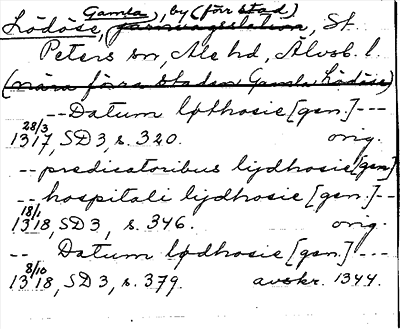 Lödöse, Gamla, by (förr stad), järnvägsstation, St.
Peters sn, Ale hd, Älvsb. l.
(nära förra staden Gamla Lödöse)
-- Datum løthosie [gen.] ---
28/3 1317, SD 3, s. 320. orig.
-- predicatoribus lijdhosie [gen.]
-- hospitali lijdhosie [gen.] --
18/1 1318, SD 3, s. 346. orig.
-- Datum lødhosie [gen.] ---
8/10 1318, SD 3, s. 379. avskr. 1344.